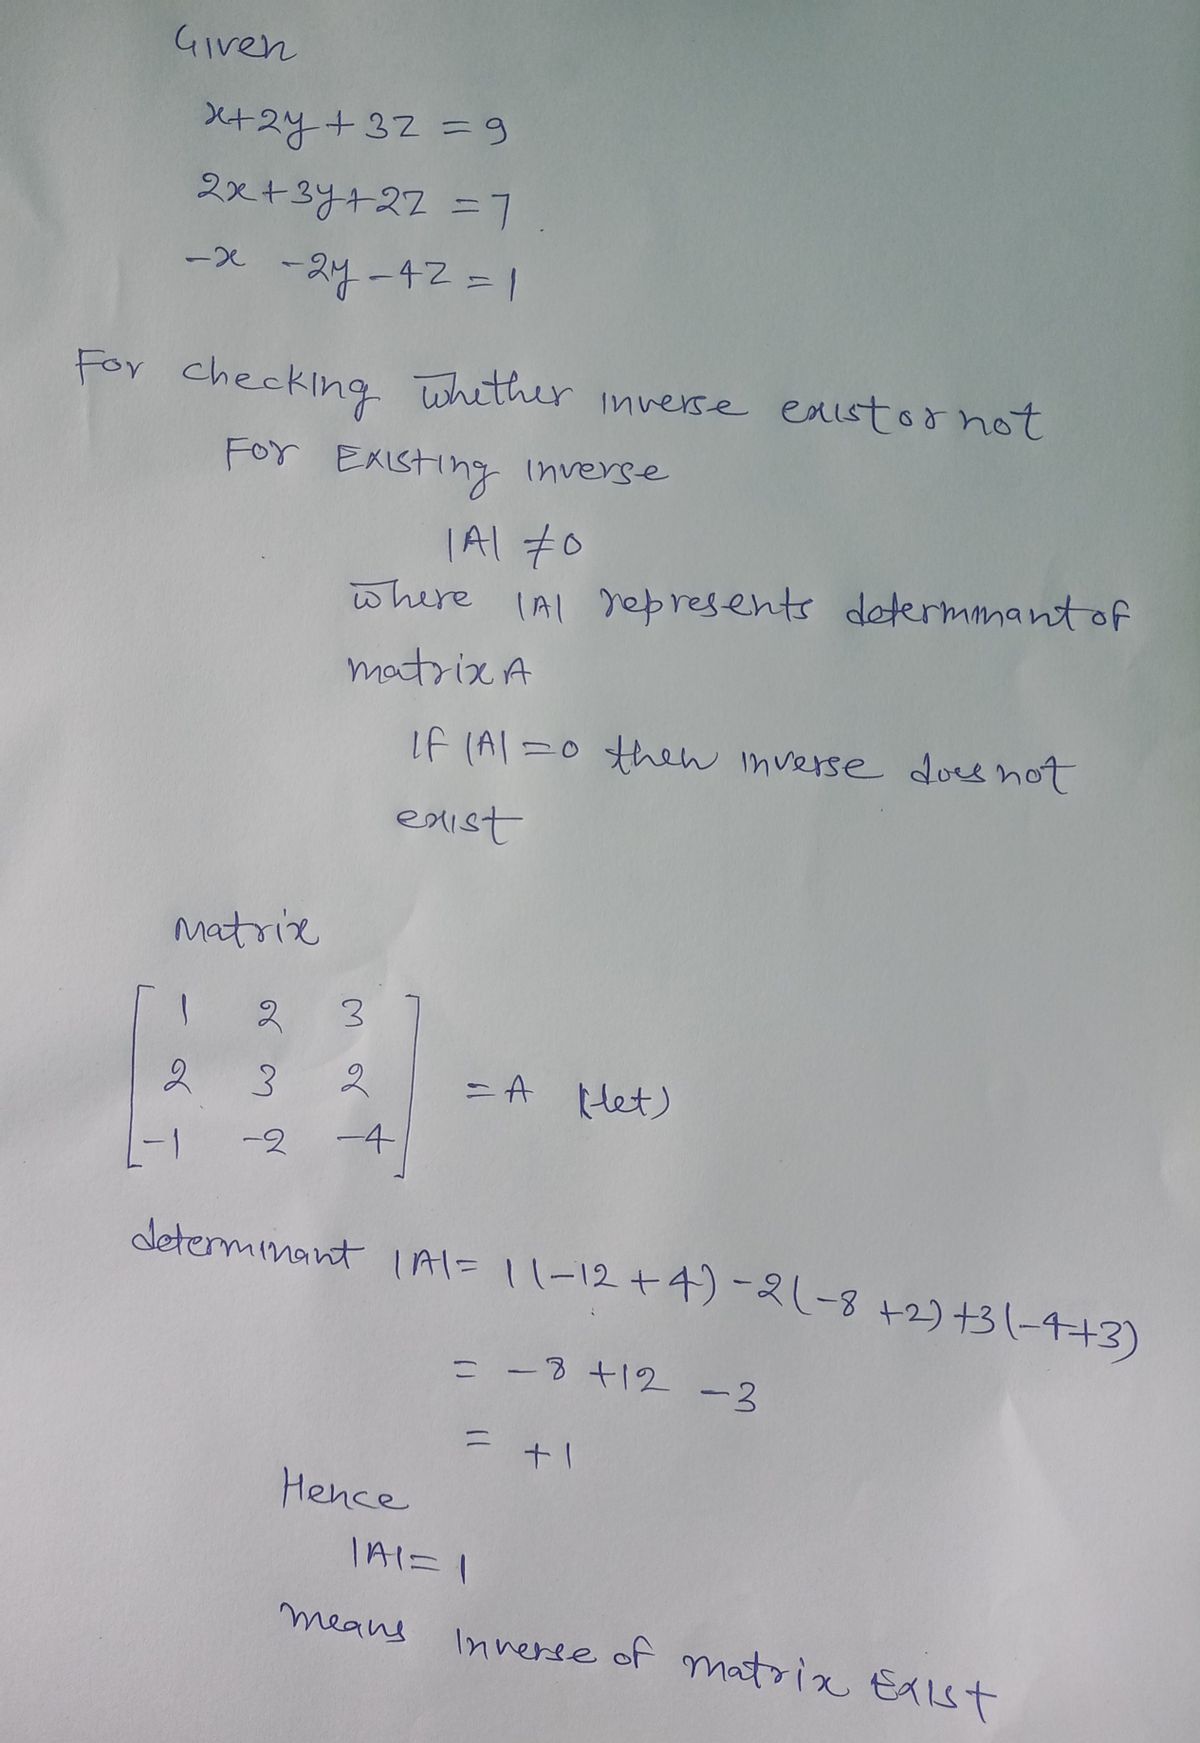 Given
x+2y+3z=9
2x+3y+2z=7
-x -2y-4z=1
For checking whether inverse exist or not
For Existing inverse
|A| ≠0
where |A| represents determinant of
matrix A
If |A|=0 then inverse does not
exist
Matrix
1 2 3
2 3 2 = A (let)
-1 -2 -4
determinant |A|= 1(-12+4)-2(-8+2)+3(-4+3)
= -8+12-3
= +1
Hence
|A|=1
means Inverse of matrix Exist